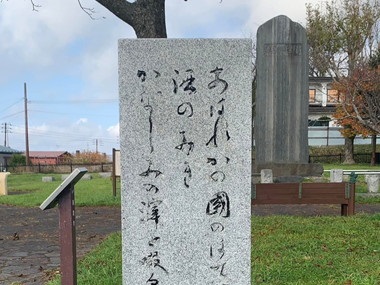 あはれかの國のはて
酒のみき
かなしみの滓を啜